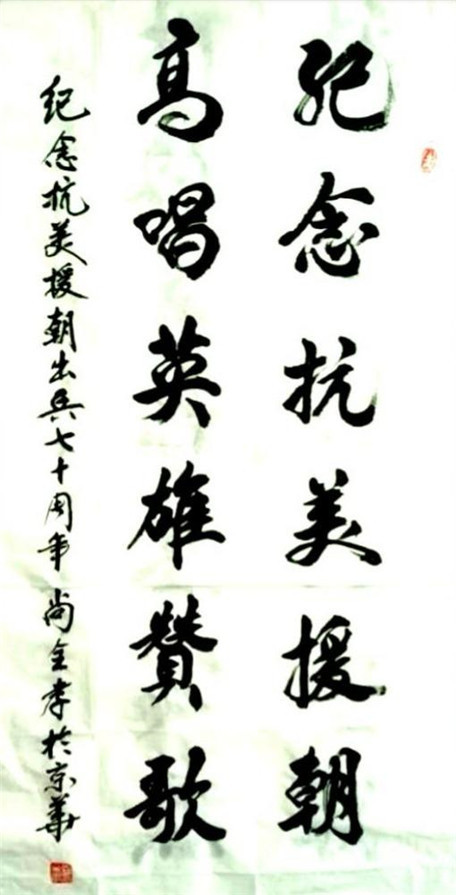 纪念抗美援朝
高唱英雄赞歌
纪念抗美援朝出兵七十周年 尚全孝於京华